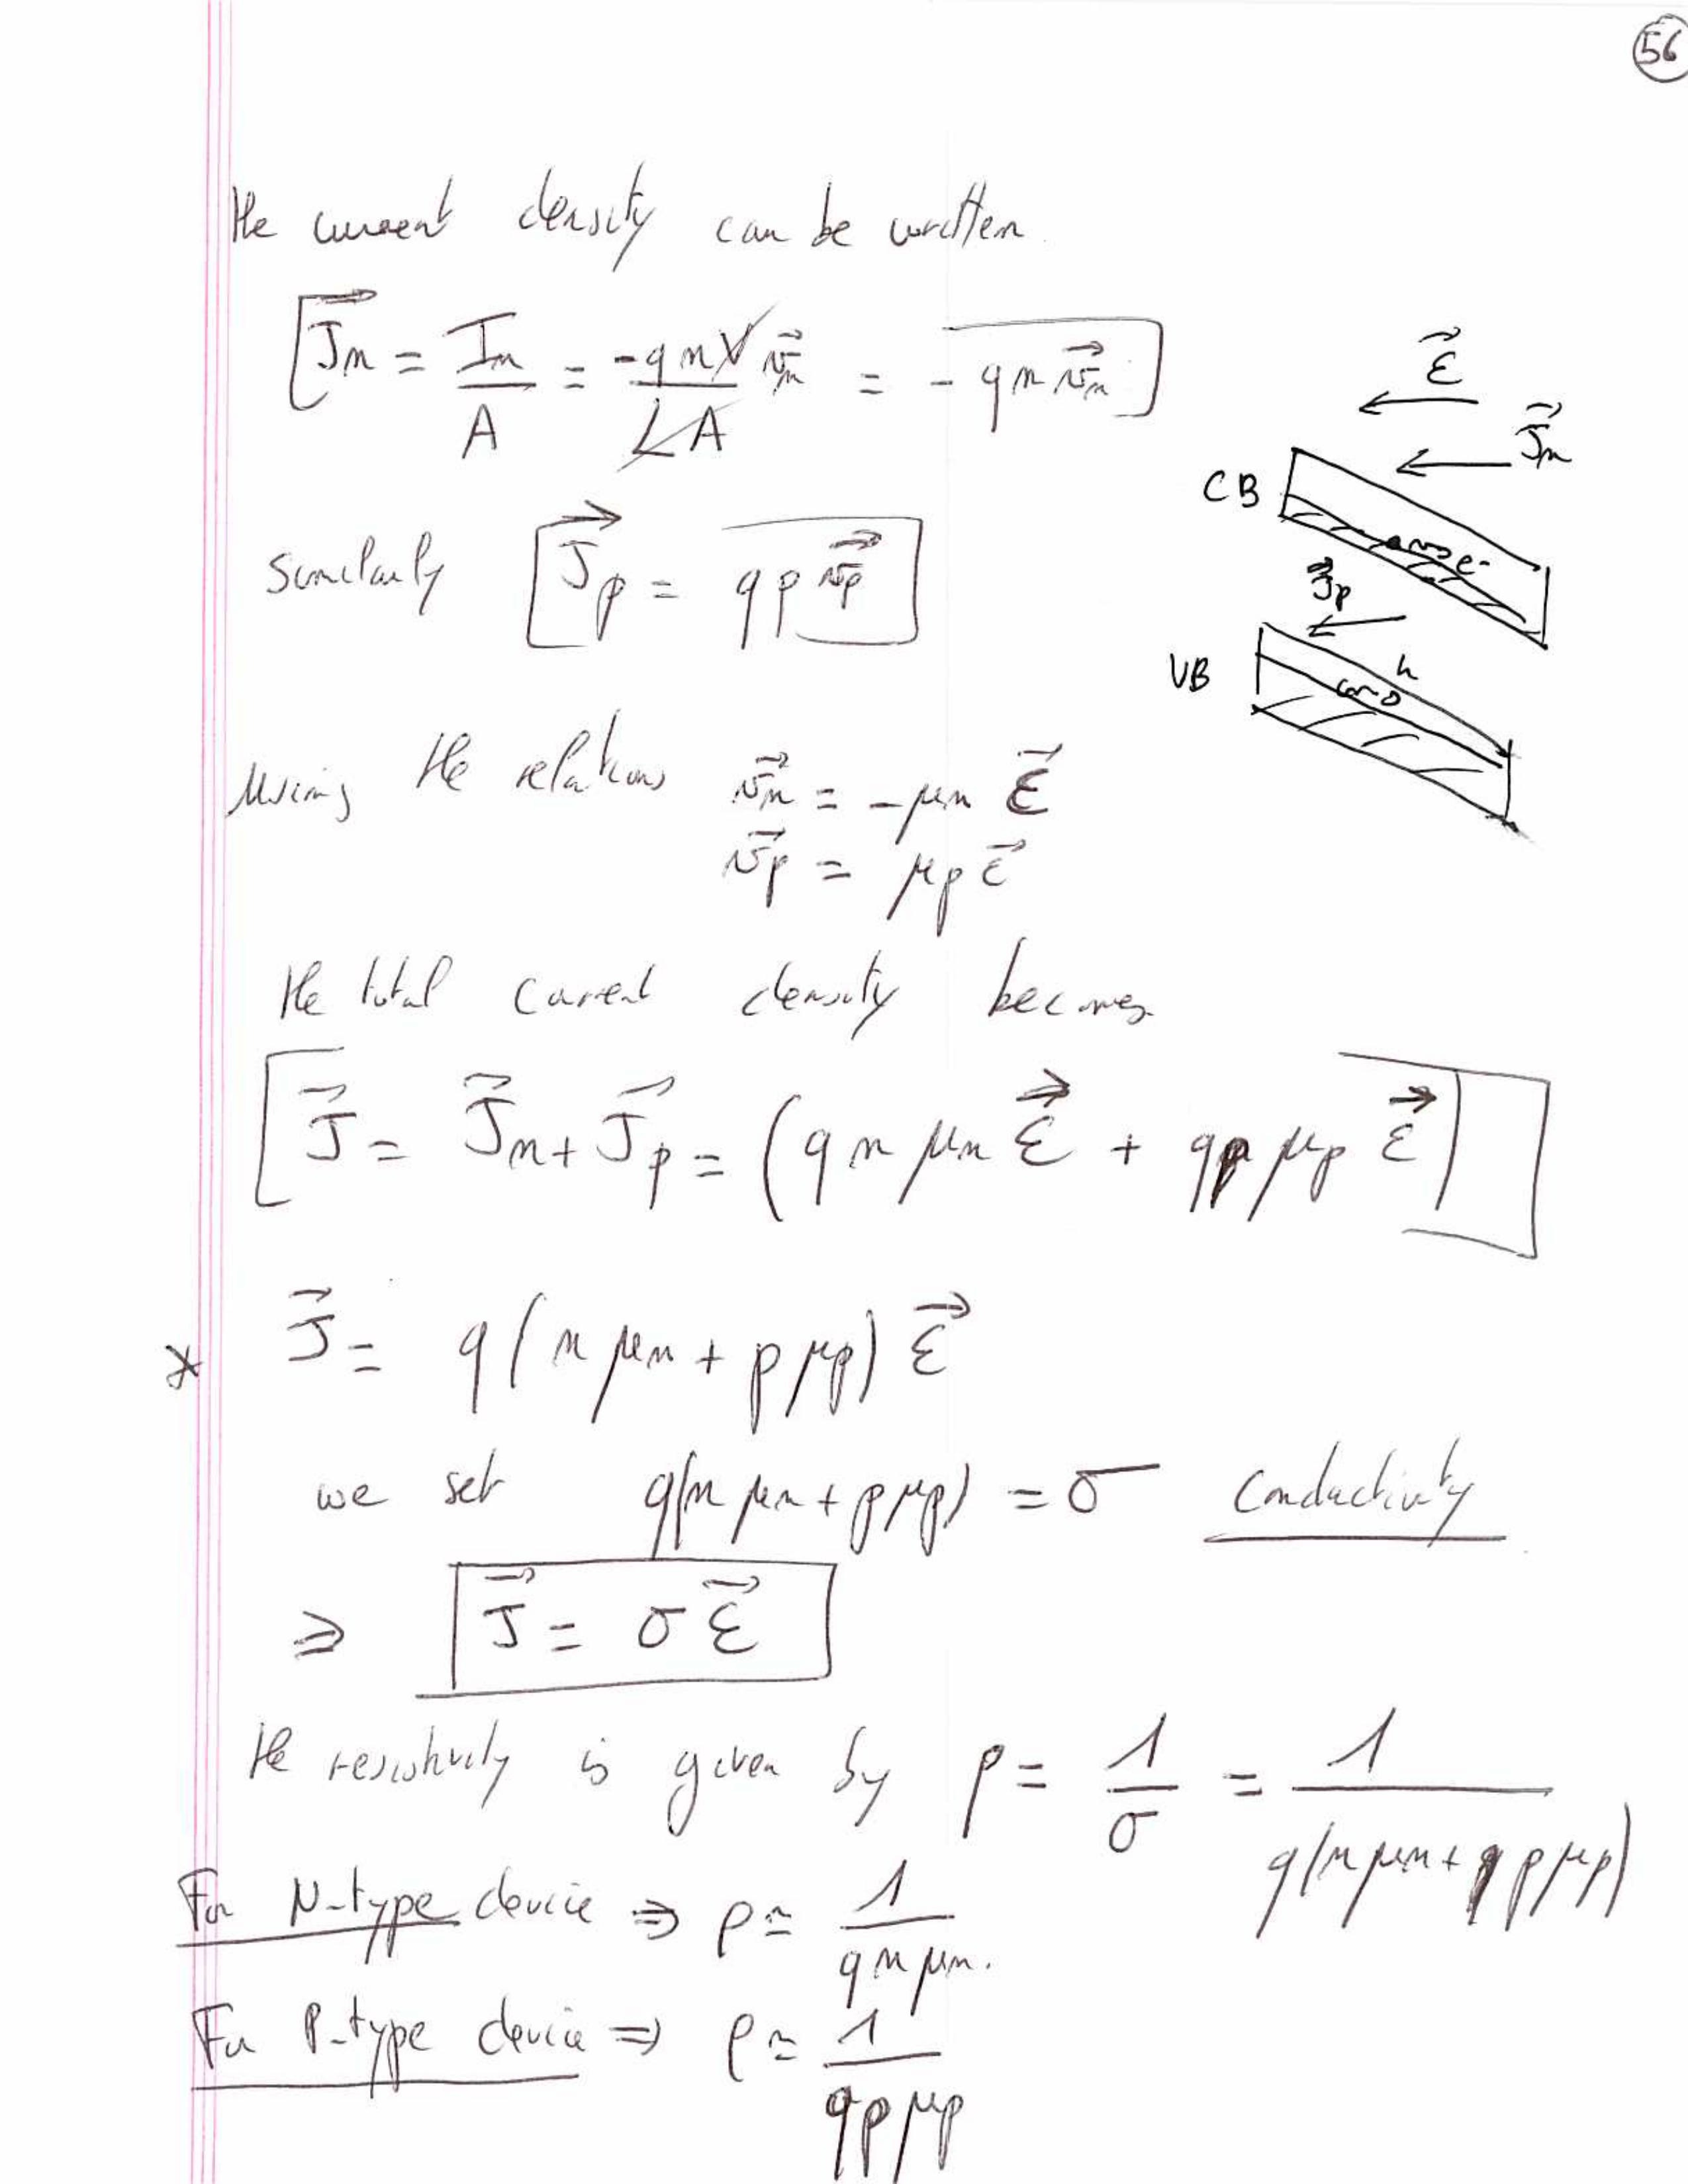 56
The current density can be written
J⃗n = In / A = -qnV v⃗n / LA = -qn v⃗n
Similarly J⃗p = qp v⃗p
ε⃗
J⃗n
CB
e-
J⃗p
VB
h
Using the relations v⃗n = -μn ε⃗
v⃗p = μp ε⃗
The total current density becomes
J⃗ = J⃗n + J⃗p = (qn μn ε⃗ + qp μp ε⃗)
* J⃗ = q(n μn + p μp) ε⃗
we set q(n μn + p μp) = σ Conductivity
⇒ J⃗ = σ ε⃗
The resistivity is given by ρ = 1/σ = 1 / q(n μn + p μp)
For N-type device ⇒ ρ ≃ 1 / qn μn.
For P-type device ⇒ ρ ≃ 1 / qp μp